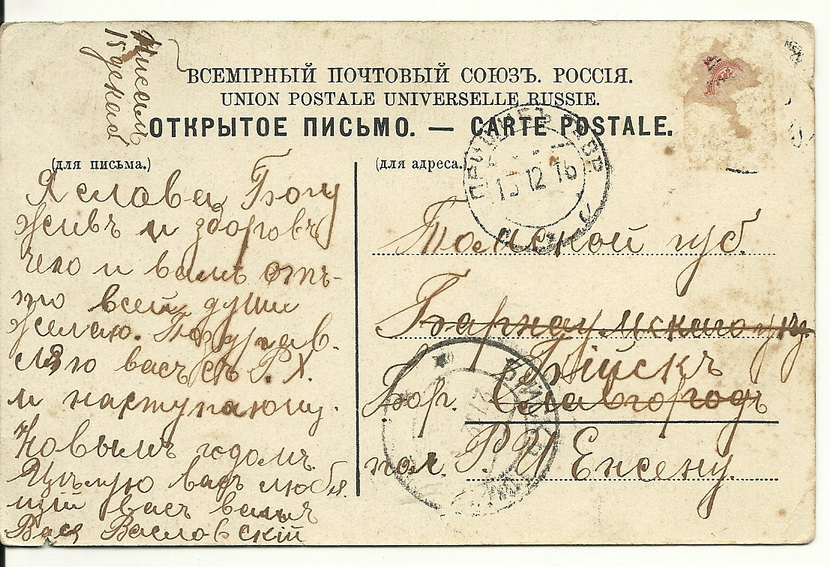 Писалъ
15 декаб
ВСЕМІРНЫЙ ПОЧТОВЫЙ СОЮЗЪ. РОССІЯ.
UNION POSTALE UNIVERSELLE RUSSIE.
ОТКРЫТОЕ ПИСЬМО. — CARTE POSTALE.
(для письма.)
Я слава Богу
живъ и здоровъ
чего и вамъ отъ-
то всей души
желаю. Поздрав.
ляю васъ съ Р. Х.
и наступающ.
Новымъ годомъ
Цѣлую васъ любя.
щій васъ вашъ
Вася Васловскій
(для адреса.)
15 12 16
Томской губ.
Барнаумскаго уѣз.
Бійскъ
Бар. Славгородъ
пол Р И Енсену.
БІЙСКЪ